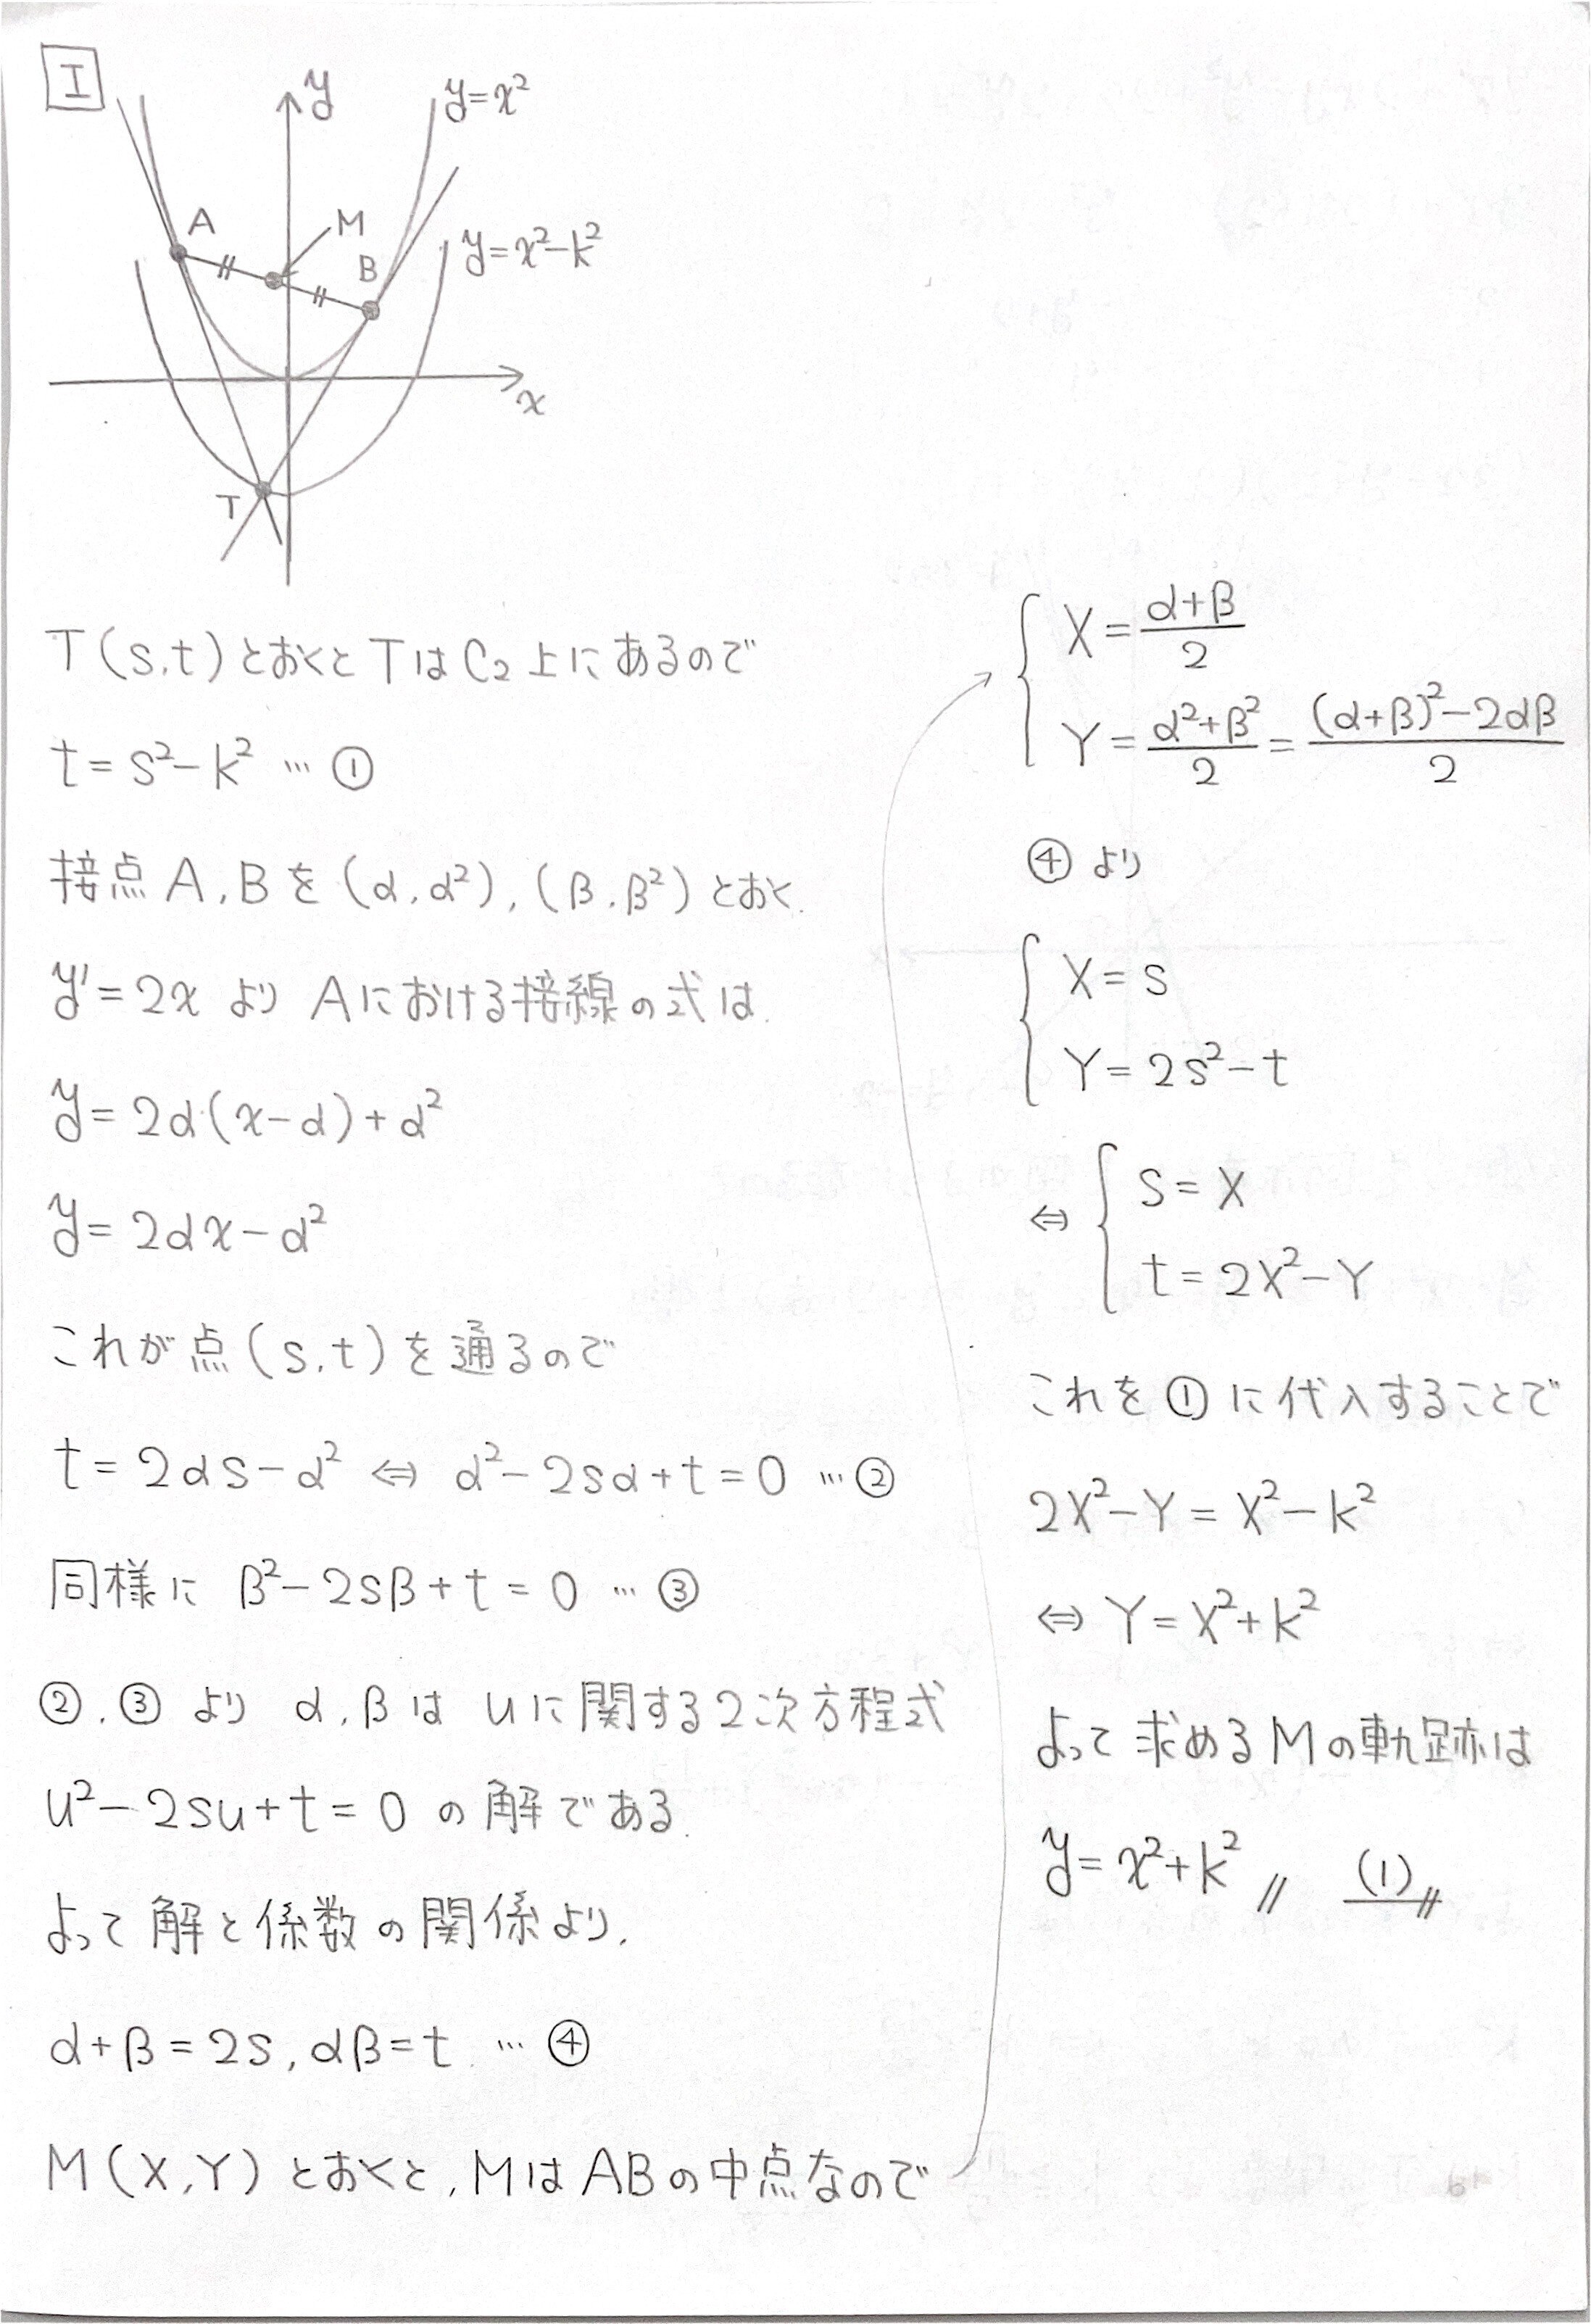 I
y
y=x²
A
M
B
y=x²-k²
x
T
T(s,t)とおくとTはC₂上にあるので
t=s²-k² … ①
接点A,Bを(α,α²),(β,β²)とおく.
y'=2x より Aにおける接線の式は.
y=2α(x-α)+α²
y=2αx-α²
これが点(s,t)を通るので
t=2αs-α² ⇔ α²-2sα+t=0 … ②
同様に β²-2sβ+t=0 … ③
②,③ より α,βは uに関する2次方程式
u²-2su+t=0 の解である.
よって解と係数の関係より,
α+β=2s,αβ=t … ④
M(X,Y)とおくと,MはABの中点なので
{ X=(α+β)/2
Y=(α²+β²)/2=((α+β)²-2αβ)/2
④より
{ X=s
Y=2s²-t
⇔ { s=X
t=2X²-Y
これを①に代入することで
2X²-Y=X²-k²
⇔ Y=X²+k²
よって求めるMの軌跡は
y=x²+k² // (1)//